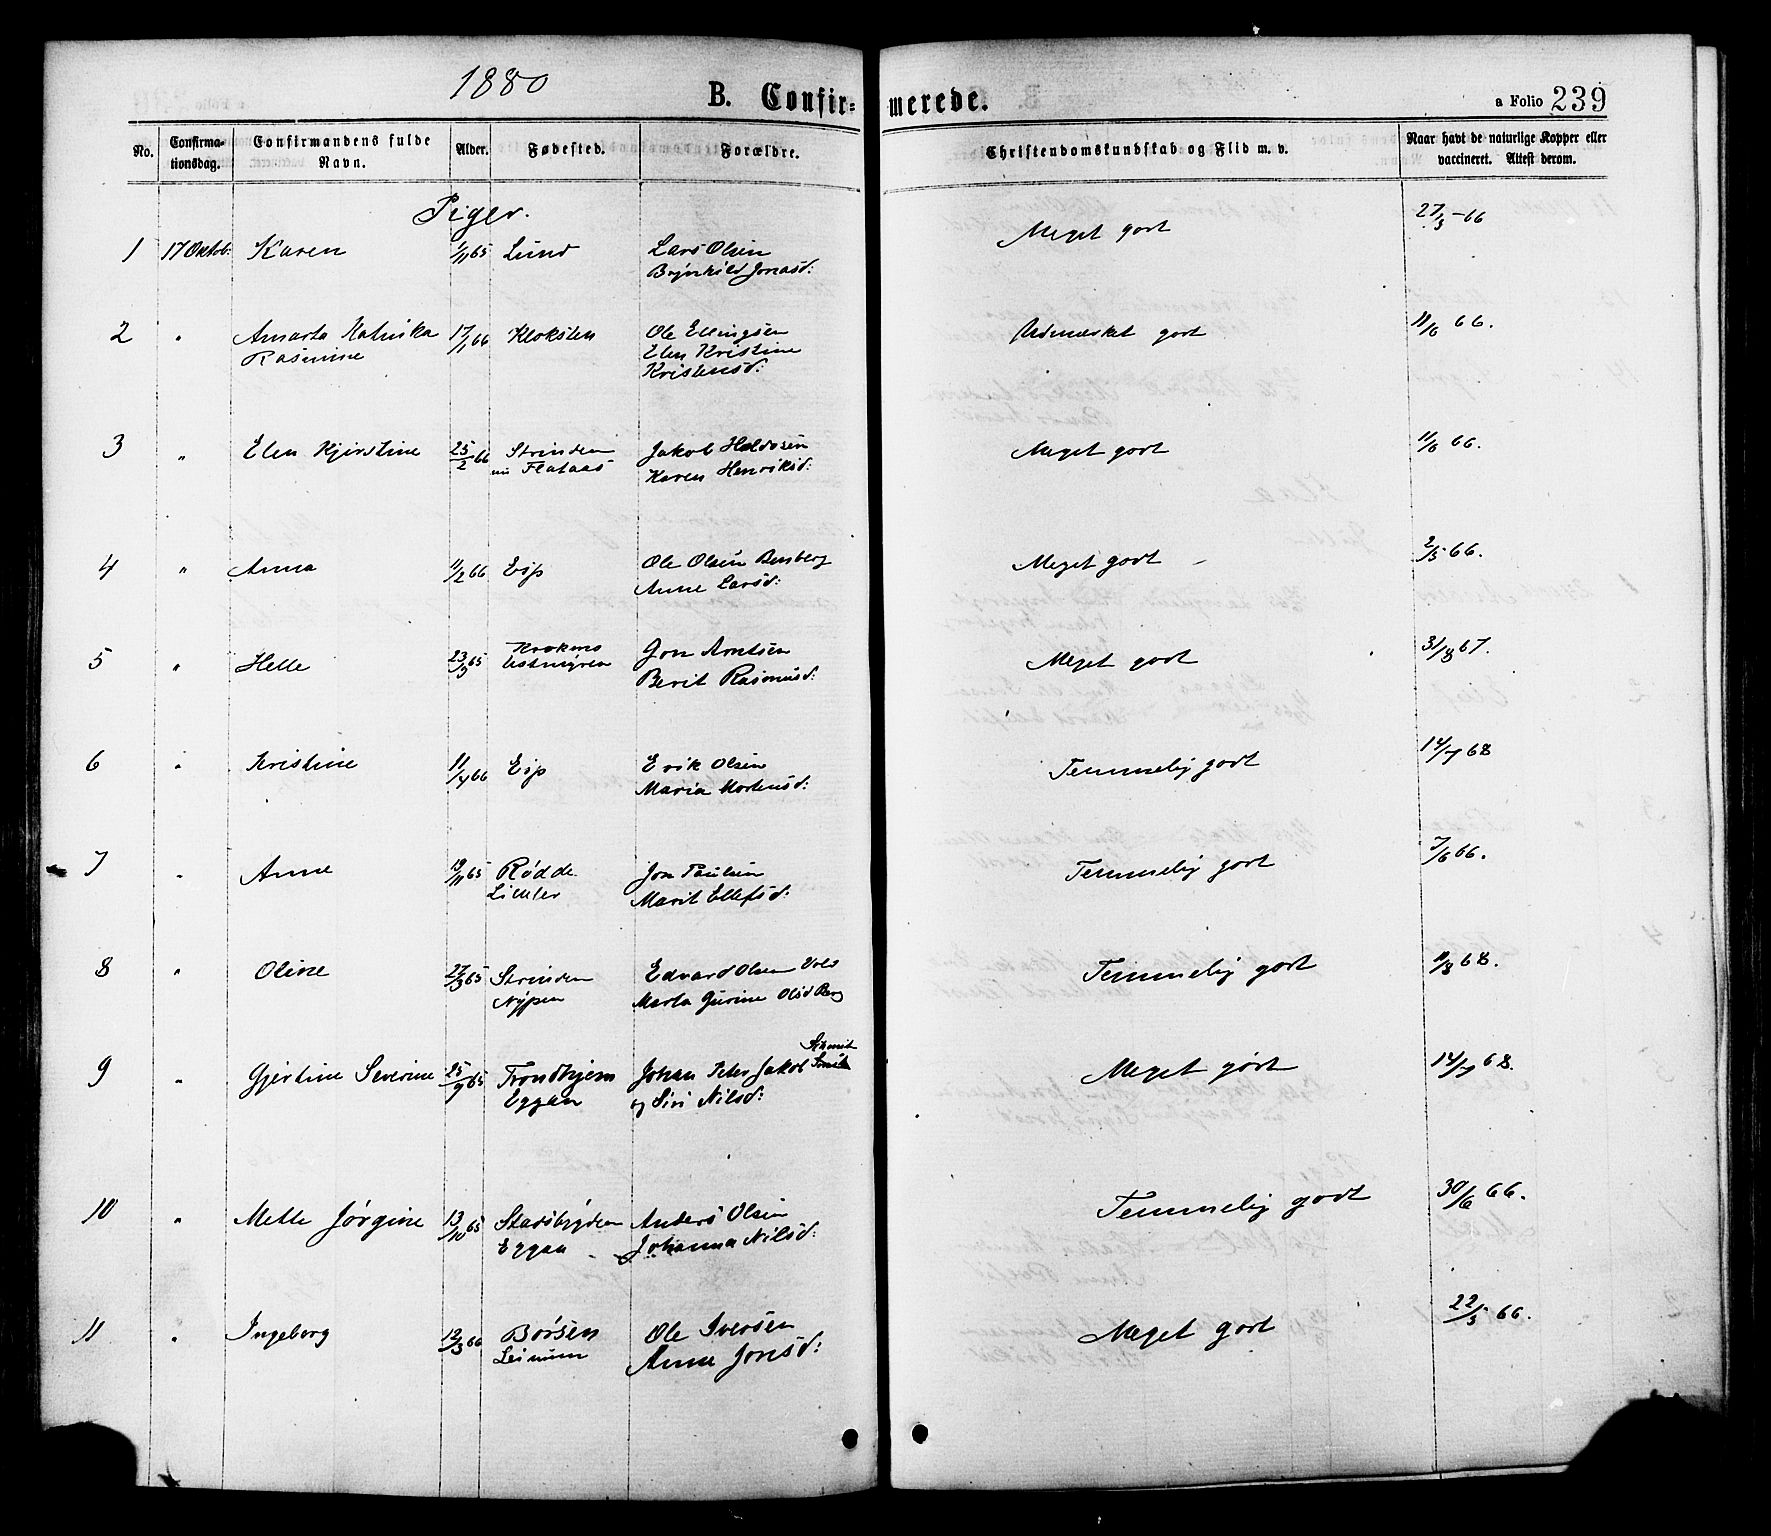 1880
B. Confir-
merede.
a Folio 239
No.
Confirma-
tionsdag.
Confirmandens fulde
Navn.
Alder.
Fødested.
Forældre.
Christendomskundskab og Flid m. v.
Naar havt de naturlige Kopper eller
vaccineret. Attest derom.
Piger.
1 17 Oktob: Karen 1/11 65 Lund Lars Olsen Meget godt 27/3 - 66
Brynhild Jonasd:
2 " Amarta Katinka 17/1 66 Kloksten Ole Ellingsen Udmærket godt 11/6 66.
Rasmine Elen Kristine
Kristensd:
3 " Elen Kjirstine 25/2 66 Strinden Jakob Haldosen Meget godt 11/6 66.
Flataas Karen Henriksd:
4 " Anna 11/2 66 Esp Ole Olsen Bensberg Meget godt 2/5 66.
Anne Larsd:
5 " Helle 23/5 65 Jon Arntsen Meget godt 31/8 67.
Østmyren Berit Rasmusd:
6 " Kristine 11/4 66 Esp Erik Olsen Temmelig godt 14/7 68
Maria Mortensd:
7 " Anne 19/11 65 Rødde Jon Paulsen Temmelig godt 7/6 66.
Marit Ellefsd:
8 " Oline 27/3 65 Strinden Edvard Olsen Temmelig godt 11/8 68.
Nypen Marta Gurine Olsd Berg
9 " Gjertine Severine 25/9 65 Trondhjem Johan Peter Jakob Meget godt 14/7 68.
Schmit
Eggan og Siri Nilsd:
10 " Mette Jørgine 13/10 65 Stadsbygden Anders Olsen Temmelig godt 30/6 66.
Eggan Johanna Nilsd:
11 " Ingeborg 12/3 66 Børsen Ole Iversen Meget godt 22/5 66.
Leinum Anne Jonsd: